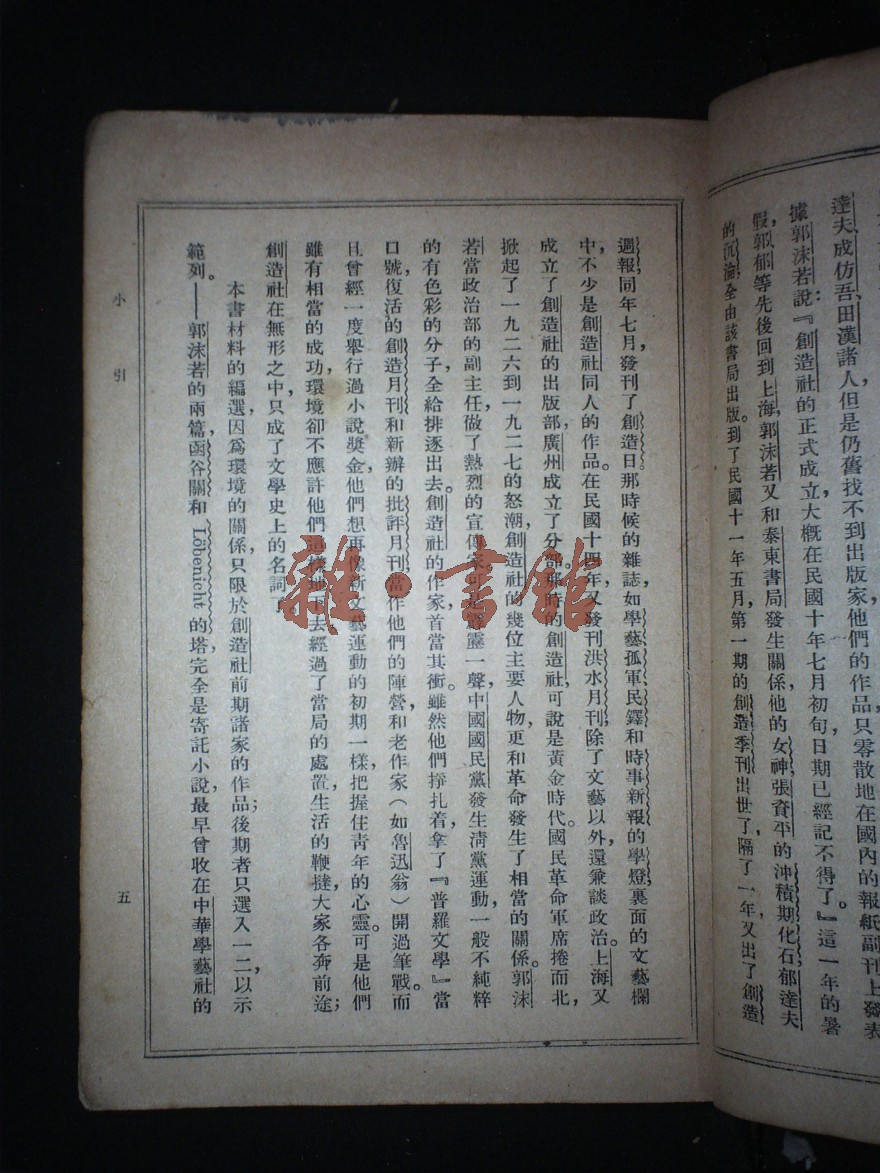 達夫、成仿吾、田漢諸人但是仍舊找不到出版家他們的作品只零散地在國內的報紙副刊上發表
據郭沫若說:『創造社的正式成立大概在民國十年七月初旬日期已經記不得了。』這一年的暑
假,郭郁等先後回到上海,郭沫若又和泰東書局發生關係,他的女神張資平的沖積期化石郁達夫
的沉淪全由該書局出版。到了民國十一年五月,第一期的創造季刊出世了,隔了一年,又出了創造
週報,同年七月,發刊了創造日。那時候的雜誌,如學藝孤軍民鐸和時事新報的學燈,裏面的文藝欄
中,不少是創造社同人的作品。在民國十四年,又發刊洪水月刊,除了文藝以外,還兼談政治。上海又
成立了創造社的出版部,廣州成立了分部。那時的創造社,可說是黃金時代。國民革命軍席捲而北,
掀起了一九二六到一九二七的怒潮,創造社的幾位主要人物,更和革命發生了相當的關係。郭沫
若當政治部的副主任,做了熱烈的宣傳家。可是霹靂一聲,中國國民黨發生清黨運動,一般不純粹
的有色彩的分子,全給排逐出去。創造社的作家首當其衝。雖然他們掙扎着,拿了『普羅文學』當
口號,復活的創造月刊和新辦的批評月刊,當作他們的陣營,和老作家(如魯迅翁)開過筆戰。而
且曾經一度舉行過小說獎金,他們想再像新文藝運動的初期一樣,把握住青年的心靈。可是他們
雖有相當的成功,環境卻不應許他們這樣地下去,經過了當局的處置,生活的鞭撻,大家各奔前途;
創造社在無形之中,只成了文學史上的名詞了。
本書材料的編選,因爲環境的關係,只限於創造社前期諸家的作品;後期者只選入一二,以示
範列。——郭沫若的兩篇,函谷關和Löbenicht的塔完全是寄託小說,最早曾收在中華學藝社的
小引
五
雜·書館